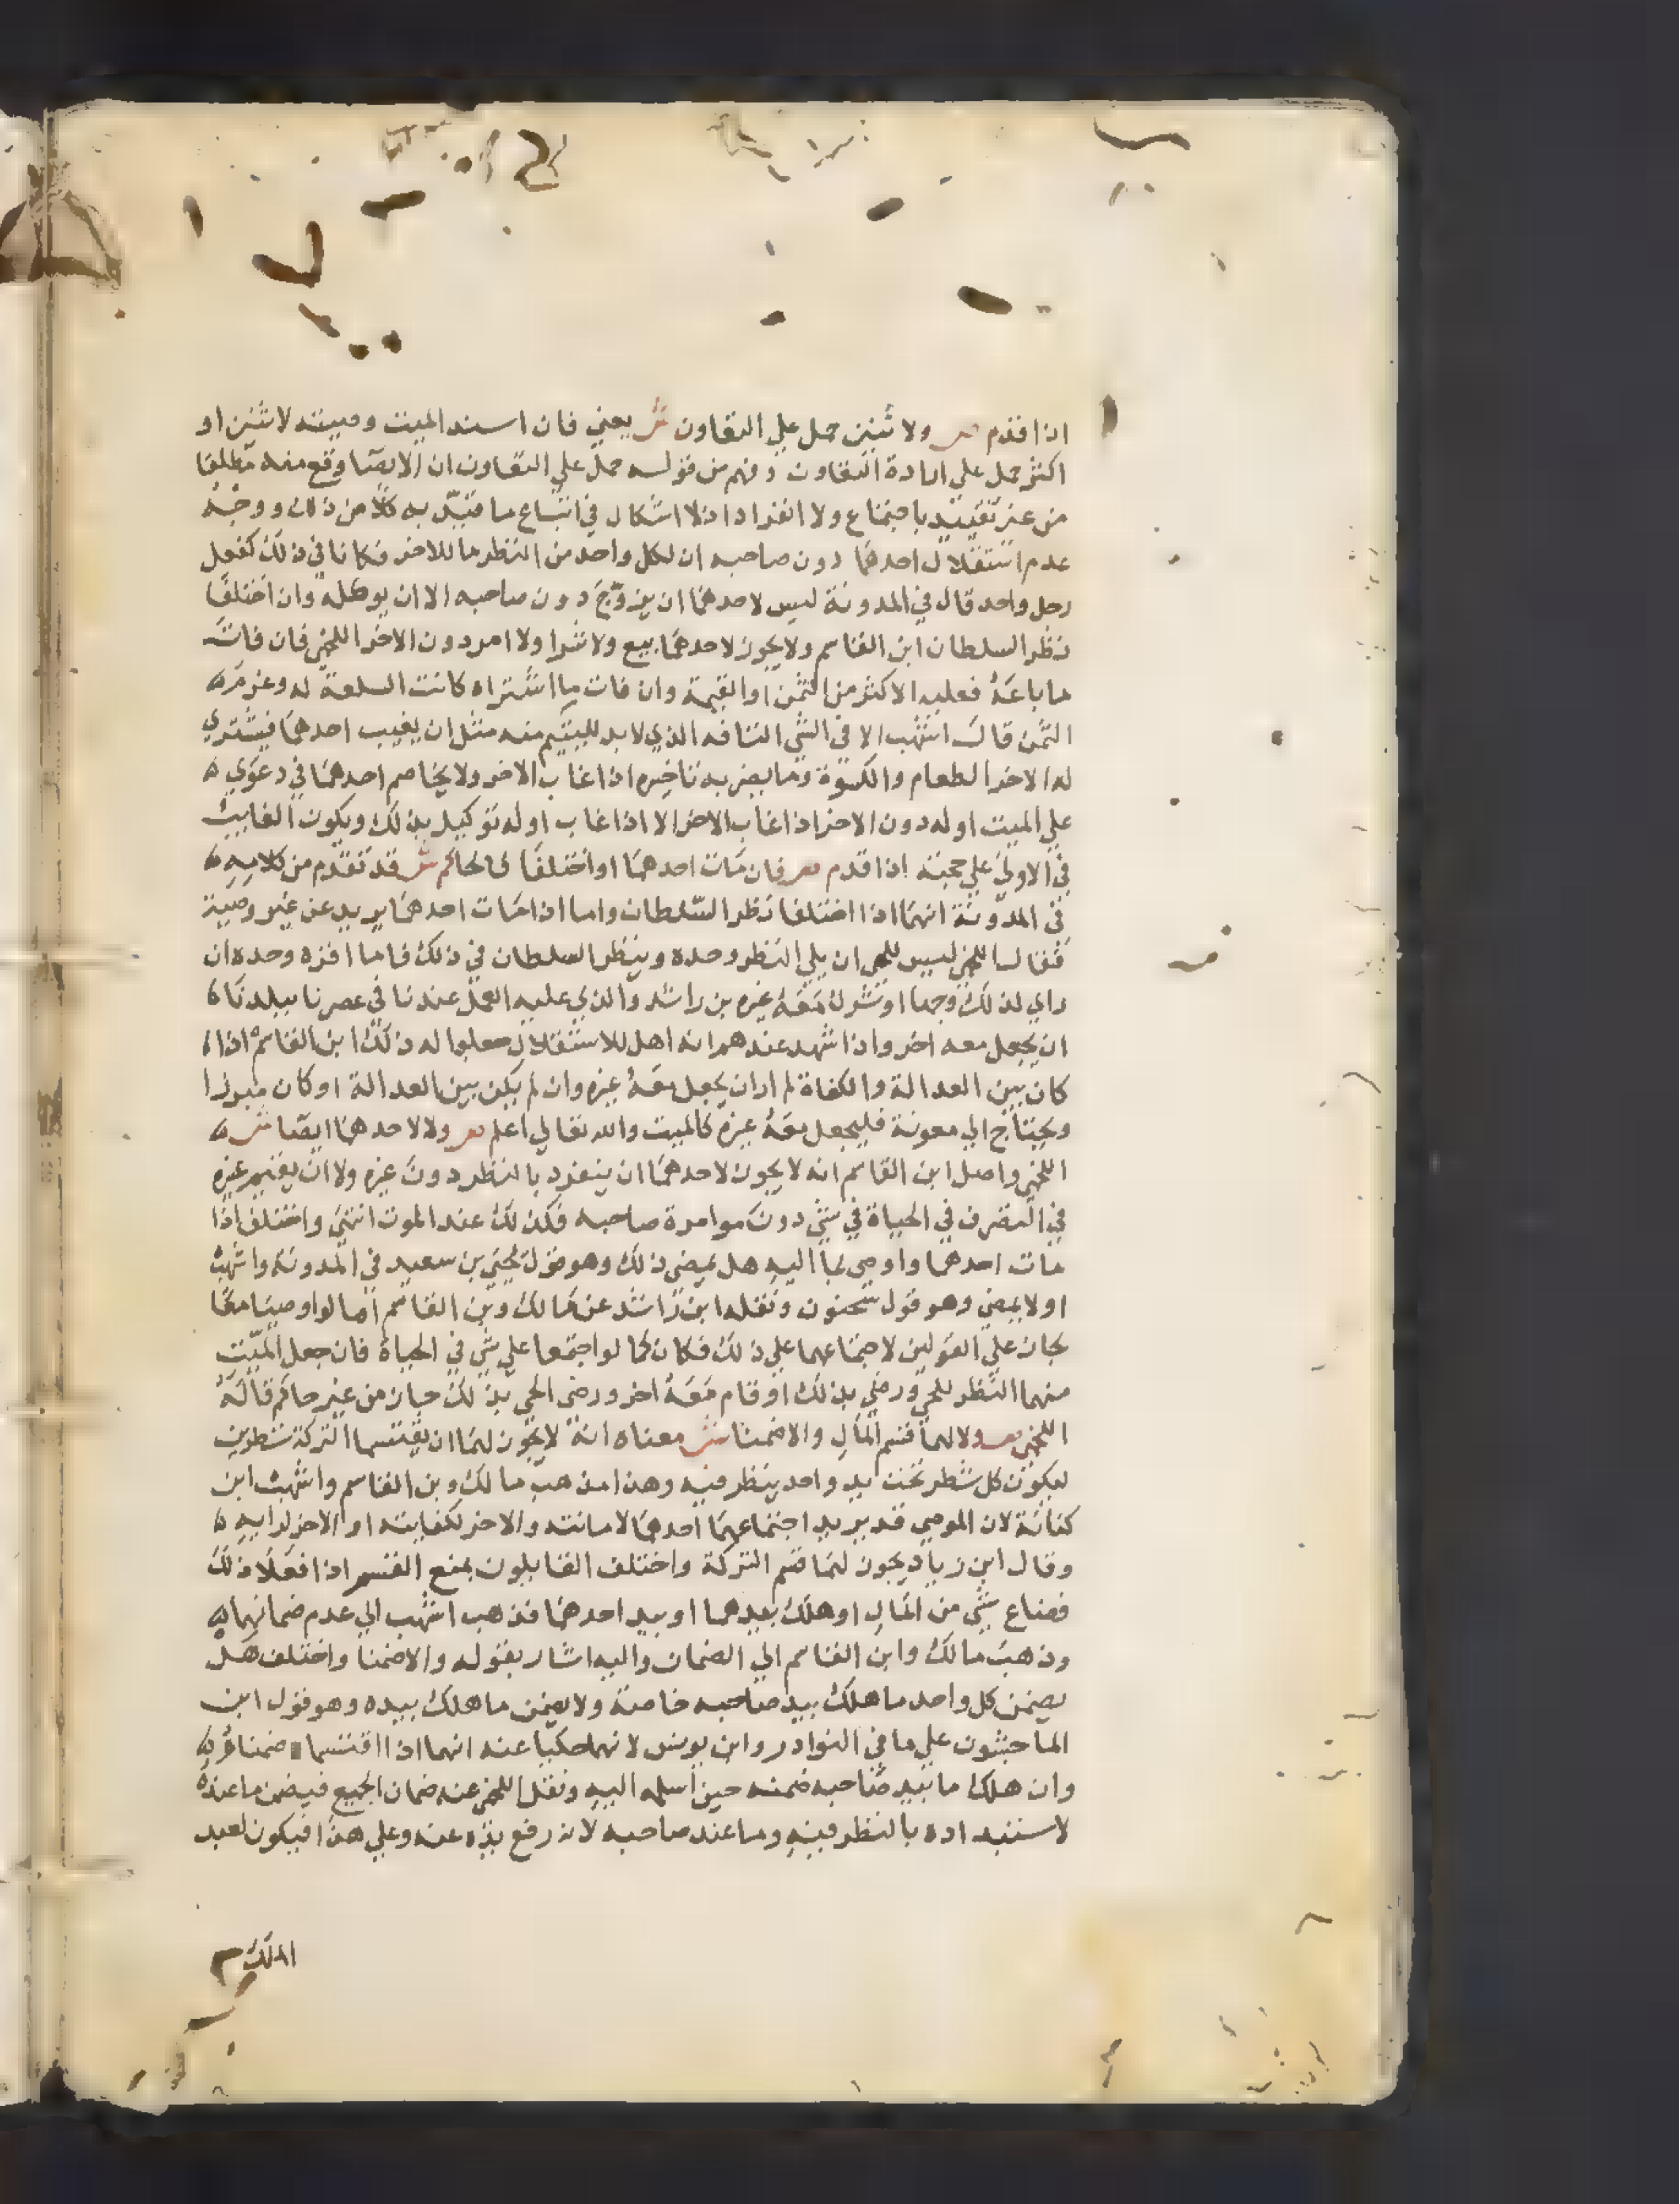 اذا قدم ص ولاثنين حمل علي التعاون ش يعني فان اسند الميت وصيته لاثنين او
اكثر حمل علي ارادة التعاون وفهم من قوله حمل علي التعاون ان الايصا وقع منه مطلقا
من غير تقييد باجتماع ولا انفراد اذ لا اشكال في اتباع ما قيد به كلا من ذلك ووجه
عدم استقلال احدهما دون صاحبه ان لكل واحد من النظر ما للاخر فكانا في ذلك كفعل
رجل واحد قال في المدونة ليس لاحدهما ان يزوج دون صاحبه الا ان يوكله وان اختلفا
نظر السلطان ابن القاسم ولا يجوز لاحدهما بيع ولا شرا ولا امر دون الاخر اللخمي فان فات
ما باعه فعليه الاكثر من الثمن او القيمة وان فات ما اشتراه كانت السلعة له وغرم
الثمن قال اشهب الا في الشي التافه الذي لا بد لليتيم منه مثل ان يغيب احدهما فيشتري
له الاخر الطعام والكسوة وما يضر به تاخيره اذا غاب الاخر ولا يخاصم احدهما في دعوي
علي الميت او له دون الاخر اذا غاب الاخر الا اذا غاب او له توكيل بذلك ويكون الغايب
في الاولي علي حجته اذا قدم ص فان مات احدهما او اختلفا فالحاكم ش قد تقدم من كلامه
في المدونة انهما اذا اختلفا نظر السلطان واما اذا مات احدهما يريد عن غير وصية
فقال اللخمي ليس للحي ان يلي النظر وحده وينظر السلطان في ذلك فاما اقره وحده ان
راي لذلك وجها او شرك معه غيره بن راشد والذي عليه العمل عندنا في عصرنا ببلدنا
ان يجعل معه اخر واذا شهد عندهم انه اهل للاستقلال جعلوا له ذلك ابن القاسم اذا
كان بين العدالة والكفاة لم ار ان يجعل معه غيره وان لم يكن بين العدالة او كان مبرزا
ويحتاج الي معونة فليجعل معه غيره كالميت والله تعالي اعلم ص ولا لاحدهما ايصا ش
اللخمي واصل ابن القاسم انه لا يجوز لاحدهما ان ينفرد بالنظر دون غيره ولا ان يقيم غيره
في التصرف في الحياة في شي دون موامرة صاحبه فكذلك عند الموت انتهي واختلف اذا
مات احدهما واوصي بما اليه هل يمضي ذلك وهو قول يحيي بن سعيد في المدونة واشهب
او لا يمضي وهو قول سحنون ونقله ابن راشد عن مالك وبن القاسم اما لو اوصيا معا
لجاز علي القولين لاجتماعهما علي ذلك فكان كما لو اجتمعا علي شي في الحياة فان جعل الميت
منهما النظر للحي ورضي بذلك او قام معه اخر ورضي الحي بذلك جاز من غير حاكم قاله
اللخمي ص ولا لهما قسم المال والا ضمنا ش معناه انه لا يجوز لهما ان يقتسما التركة شطرين
ليكون كل شطر تحت يد واحد ينظر فيه وهذا مذهب مالك وبن القاسم واشهب ابن
كنانة لان الموصي قد يريد اجتماعهما احدهما لامانته والاخر لكفايته او الاخر لرايه
وقال ابن زياد يجوز لهما قسم التركة واختلف القايلون بمنع القسم اذا فعلا ذلك
فضاع شي من المال او هلك بيدهما او بيد احدهما فذهب اشهب الي عدم ضمانهما
وذهب مالك وابن القاسم الي الضمان واليه اشار بقوله والا ضمنا واختلف هل
يضمن كل واحد ما هلك بيد صاحبه خاصة ولا يضمن ما هلك بيده وهو قول ابن
الماجشون علي ما في النوادر وابن يونس لانهما حكيا عنه انهما اذا اقتسما ضمنا
وان هلك ما بيد صاحبه ضمنه حين اسلمه اليه ونقل اللخمي عنه ضمان الجميع فيضمن ما عنده
لاستبداده بالنظر فيه وما عند صاحبه لانه رفع يده عنه وعلي هذا فيكون لعبد
الملك